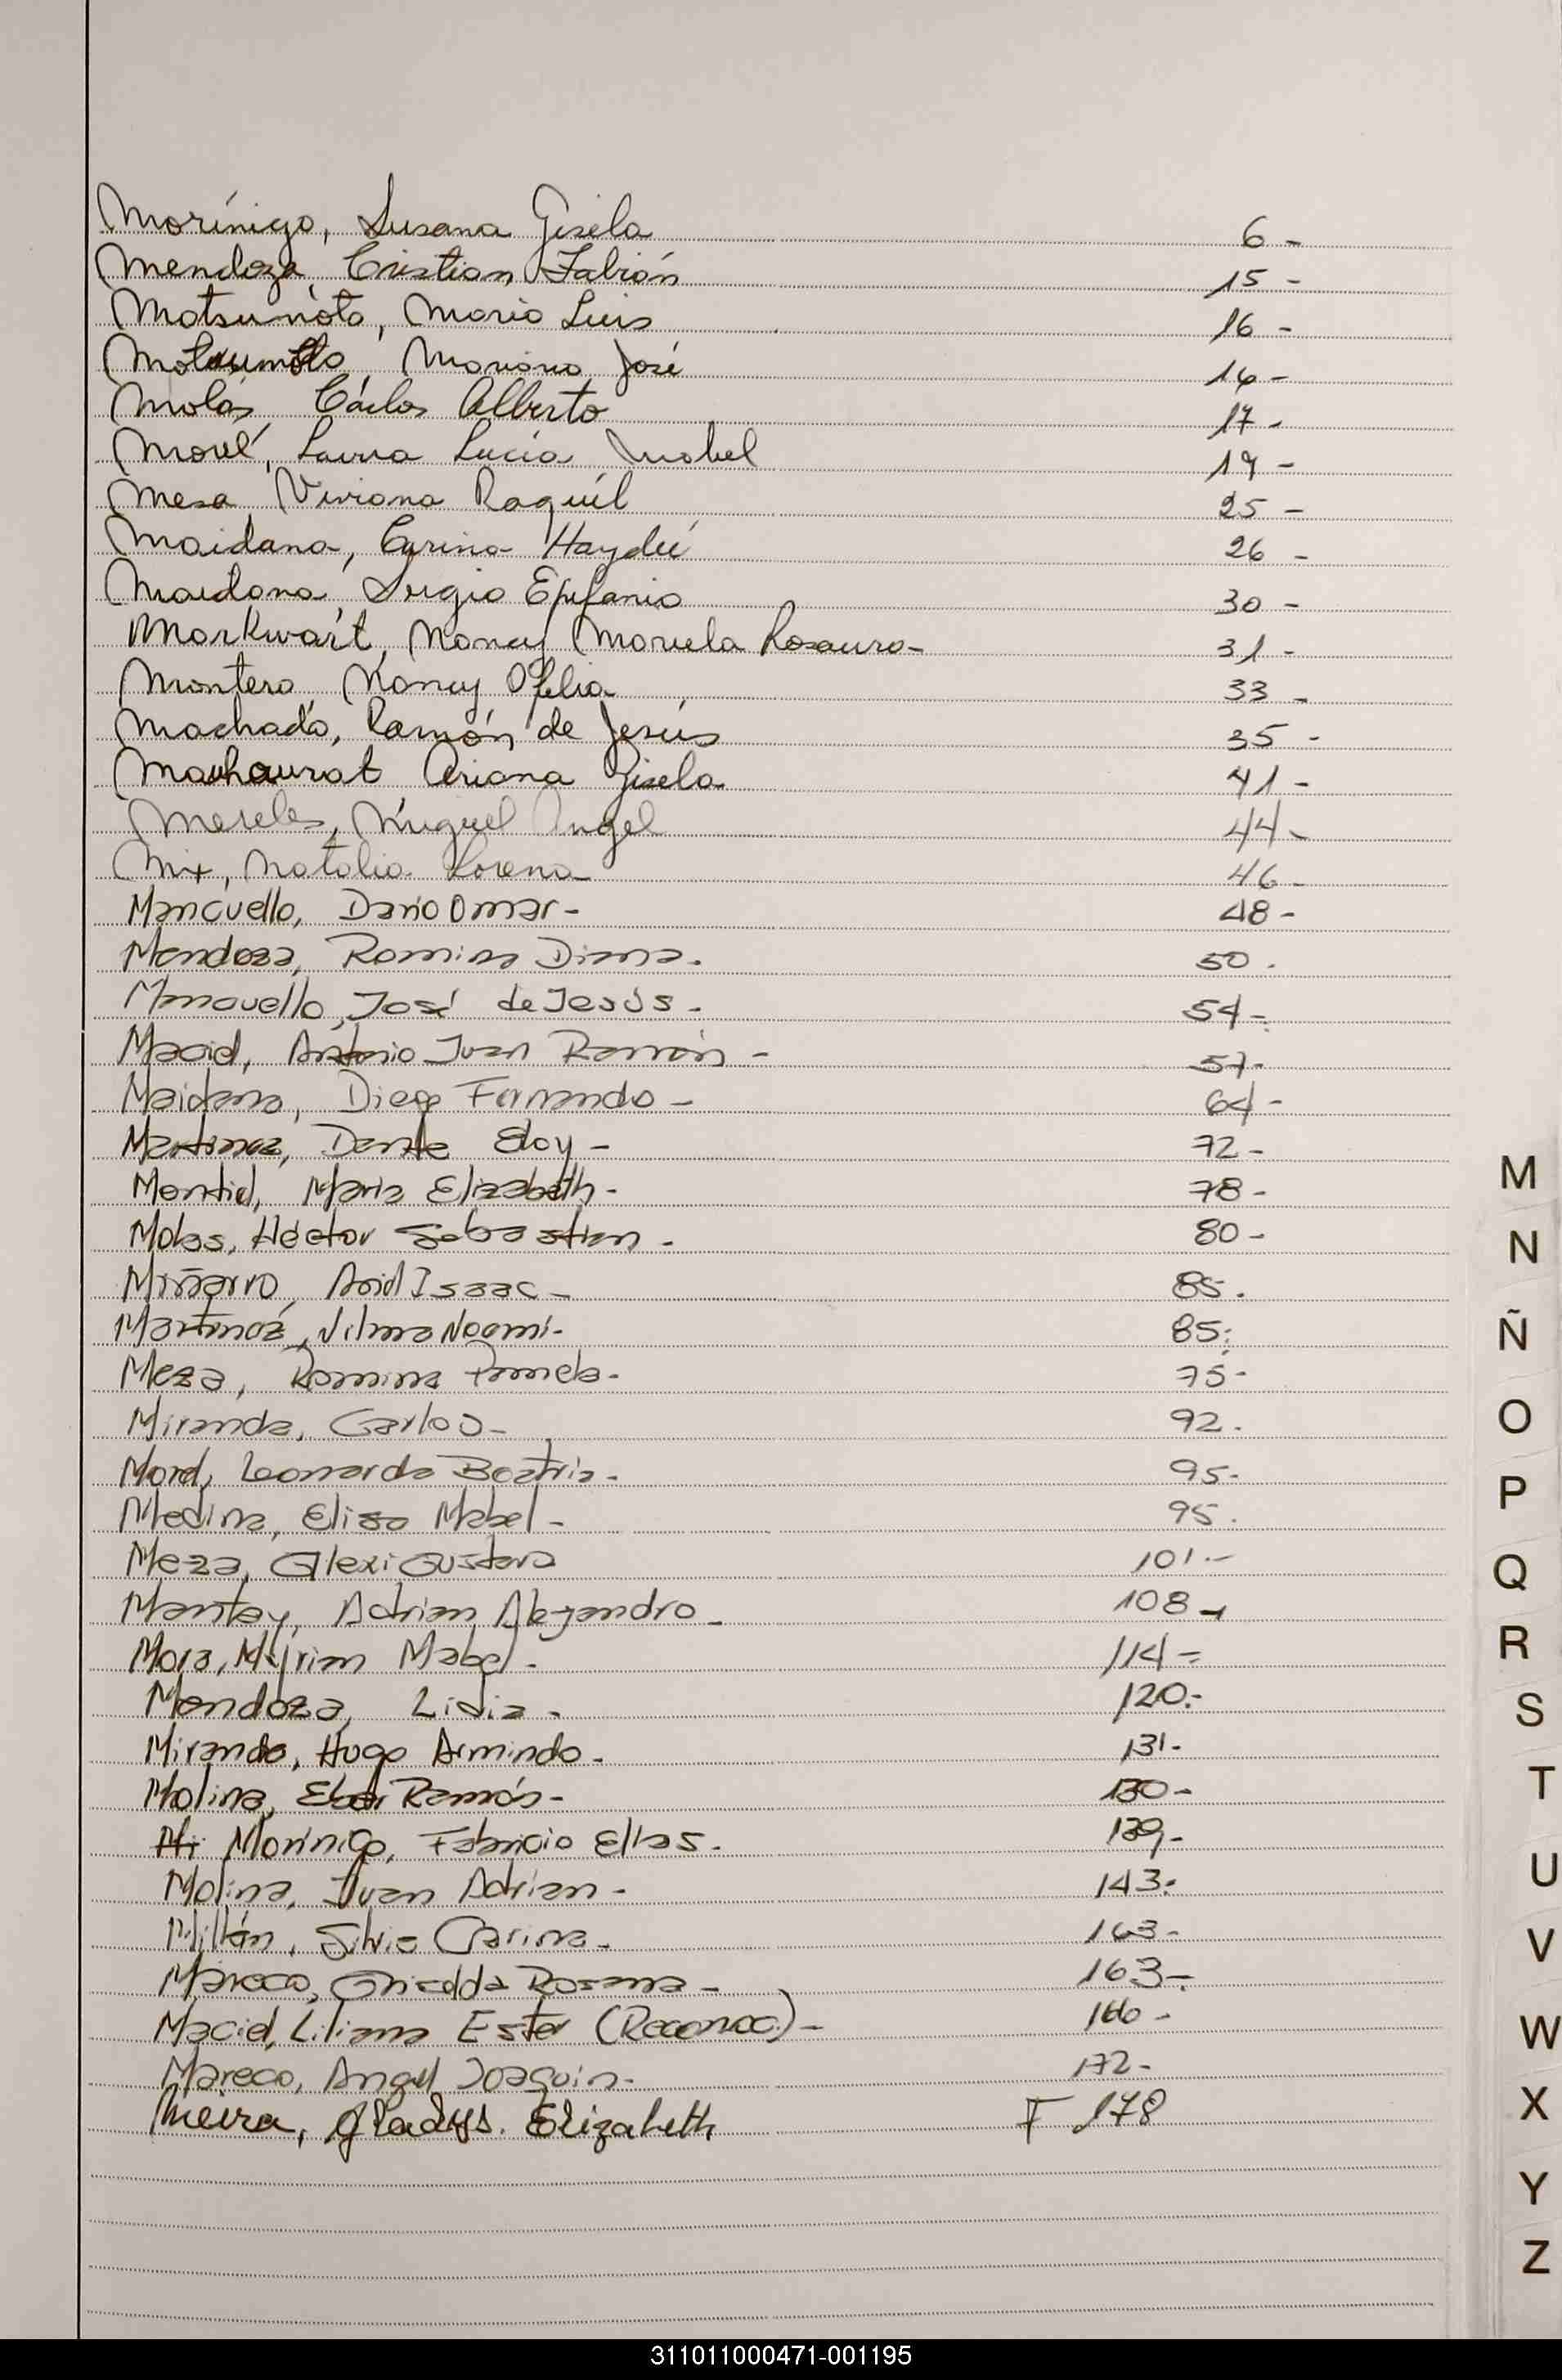 Morínigo, Susana Gisela 6-
Mendoza, Cristian Fabián 15-
Matsumoto, Mario Luis 16-
Matsumoto Mariano José 16-
Molas, Carlos Alberto 17-
Morel, Laura Lucía Mabel 19-
Mesa, Viviana Raquel 25-
Maidana, Carina Haydeé 26-
Maidana, Sergio Epifanio 30-
Markwart, Nancy Mariela Rosaura- 31-
Montero, Nancy Ofelia 33-
Machado, Ramón de Jesús 35-
Ariana Gisela 41-
Mereles, Miguel Angel 44-
Mix, Natalia Lorena 46-
Mancuello, Dario Omar- 48-
Mendoza, Romina Diana. 50.
Mancuello, José de Jesús- 54-
Maciel, Antonio Juan Ramón- 57-
Maidana, Diego Fernando- 64-
Martinez, Dante Eloy- 72-
Montiel, Maria Elizabeth- 78-
Molas, Héctor Sebastian- 80-
Miñarro, Ariel Isaac- 85.
Martinez, Vilma Noemi- 85-
Meza, Romina Pamela- 75-
Miranda, Carlos- 92.
Morel, Leonarda Beatriz- 95-
Medina, Elisa Mabel- 95.
Meza, Alexi Gustavo 101.-
Mantay, Adrian Alejandro- 108-
Mora, Myrian Mabel- 114-
Mendoza, Lidia- 120.-
Miranda, Hugo Armindo- 131-
Molina, Eber Ramón- 130-
Morínigo, Fabricio Elias- 139-
Molina, Ivan Adrian- 143-
Millán, Silvia Carina- 163-
Mareco, Griselda Rosana- 163-
Maciel, Liliana Ester (Reconoc.)- 166-
Mareco, Angel Joaquin- 172-
Meira, Gladys. Elizabeth F 178
M
N
Ñ
O
P
Q
R
S
T
U
V
W
X
Y
Z
311011000471-001195